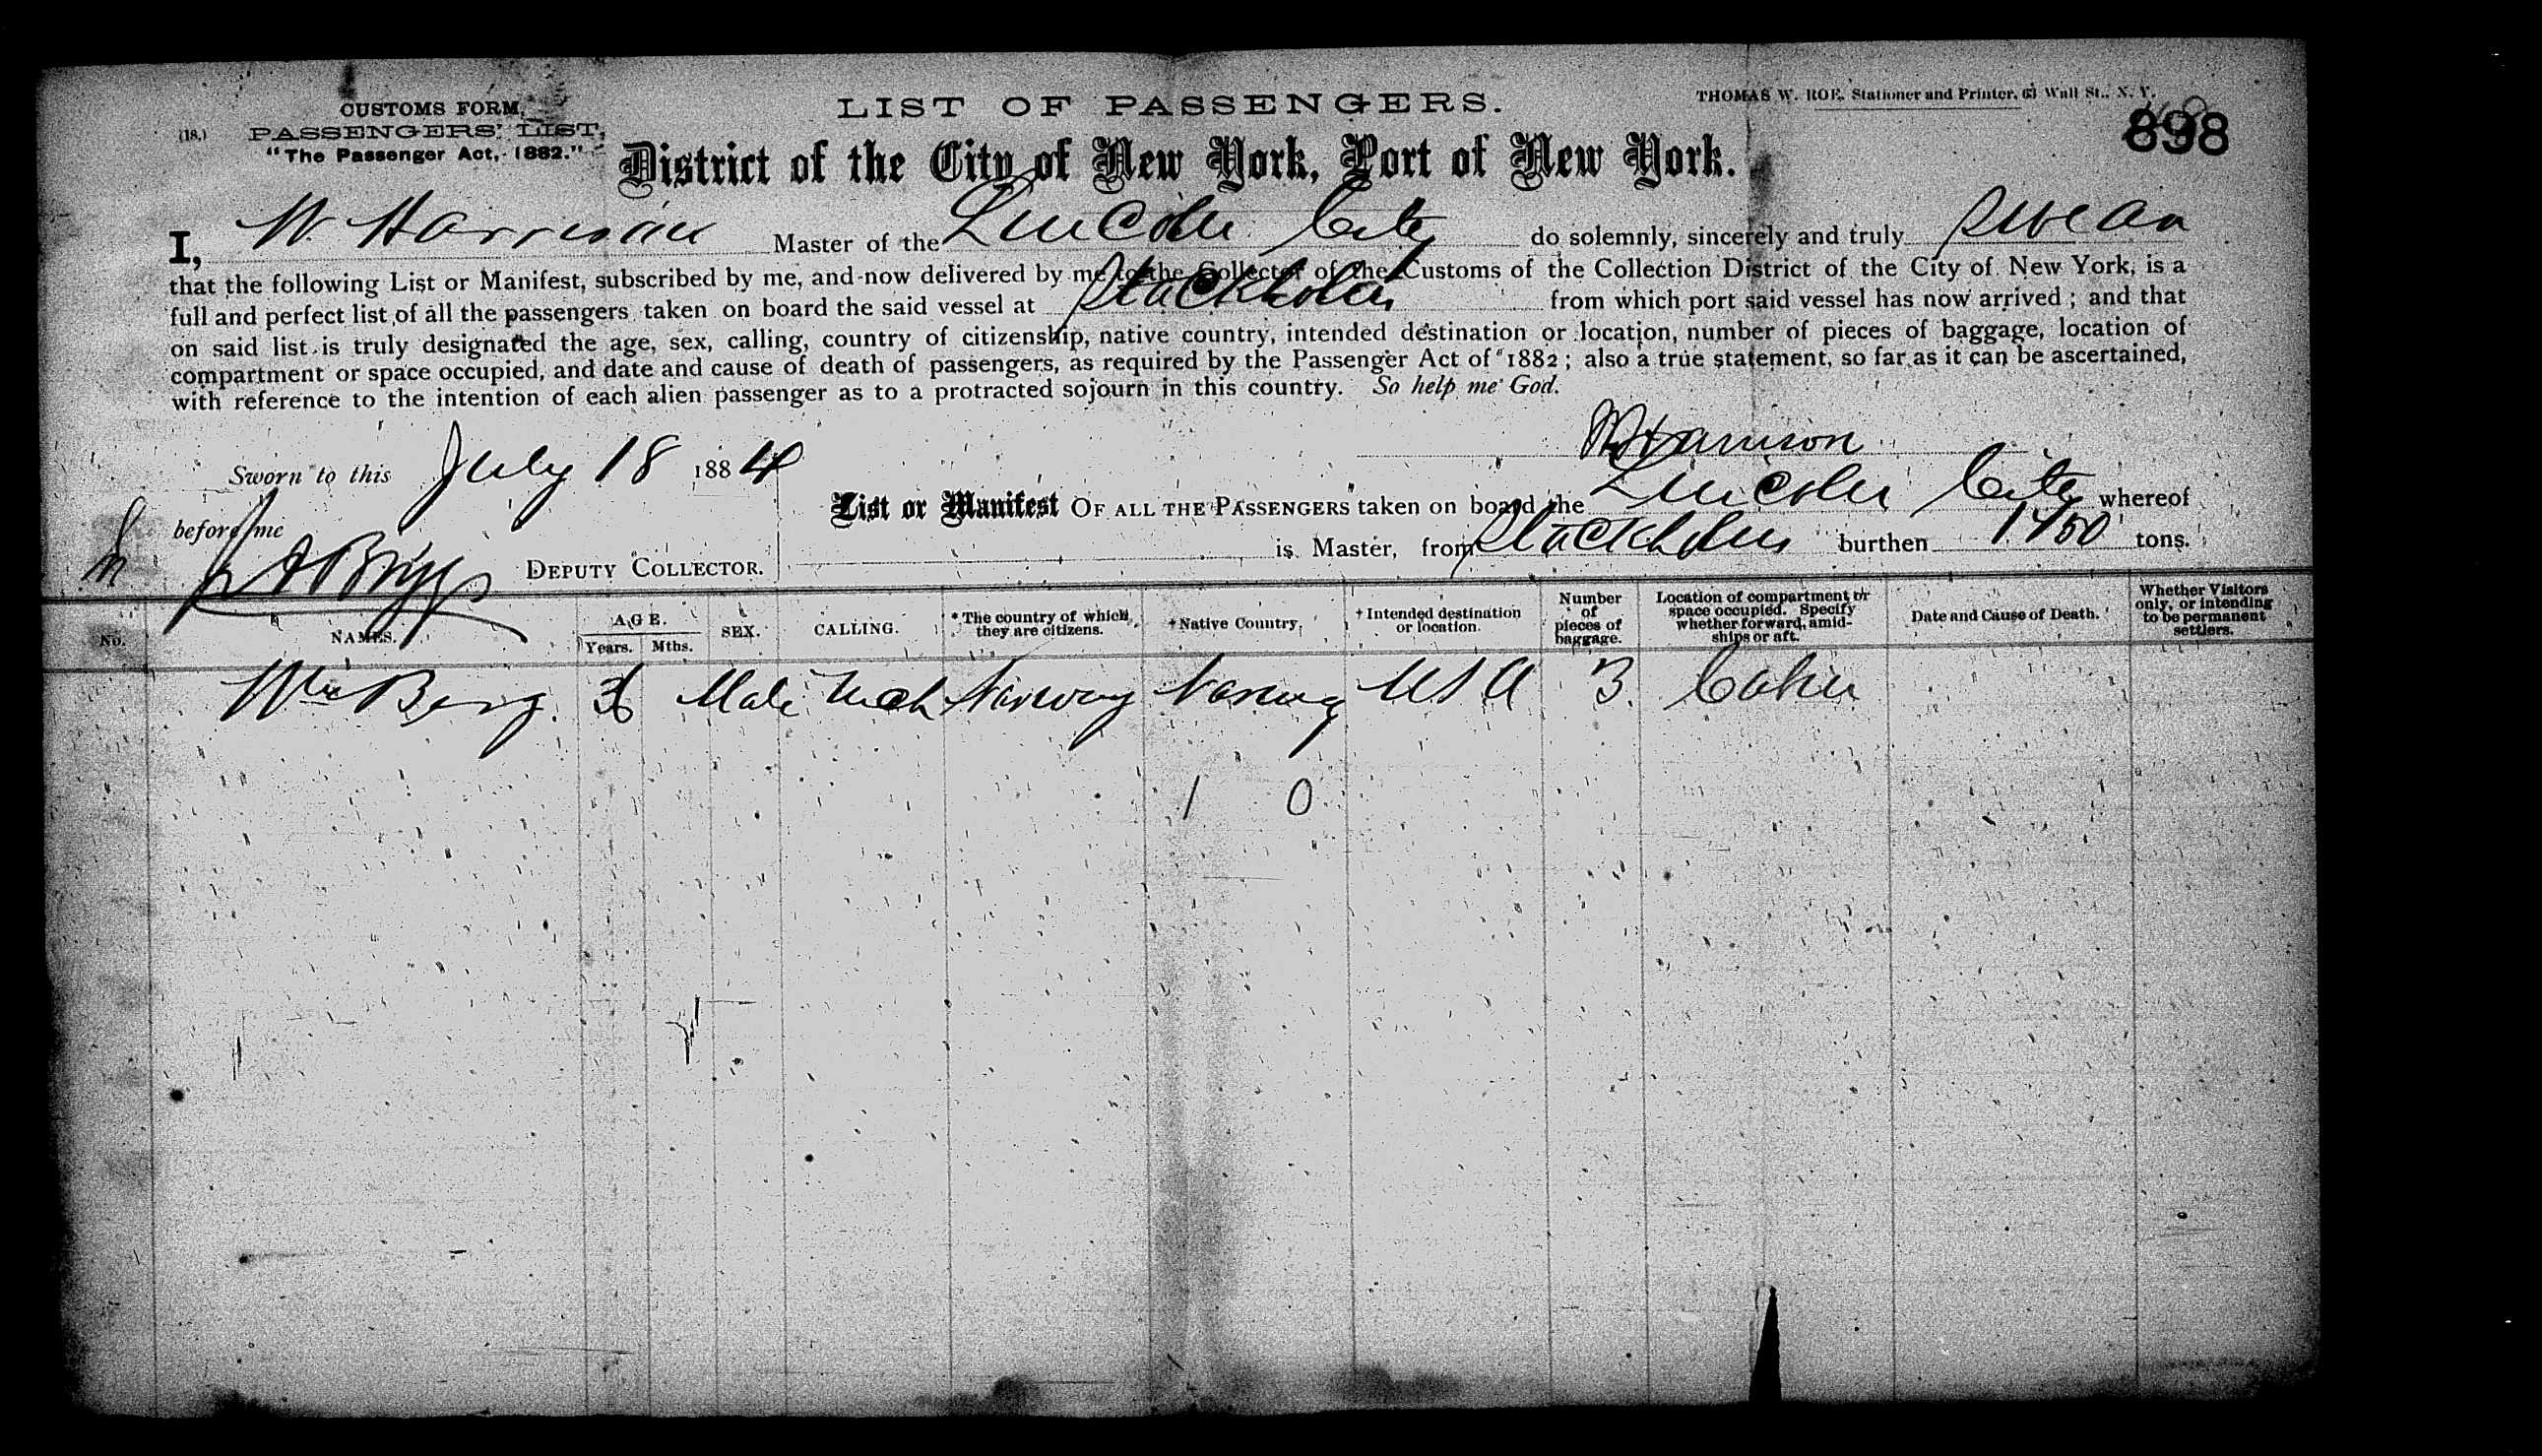 CUSTOMS FORM,
(18.) PASSENGERS' LIST,
"The Passenger Act, 1882."
LIST OF PASSENGERS.
THOMAS W. ROE, Stationer and Printer, 63 Wall St., N. Y.
898
District of the City of New York, Port of New York.
I, W. Harrison Master of the Lincoln City do solemnly, sincerely and truly swear
that the following List or Manifest, subscribed by me, and now delivered by me to the Collector of the Customs of the Collection District of the City of New York, is a
full and perfect list of all the passengers taken on board the said vessel at Stockholm from which port said vessel has now arrived ; and that
on said list is truly designated the age, sex, calling, country of citizenship, native country, intended destination or location, number of pieces of baggage, location of
compartment or space occupied, and date and cause of death of passengers, as required by the Passenger Act of 1882 ; also a true statement, so far as it can be ascertained,
with reference to the intention of each alien passenger as to a protracted sojourn in this country. So help me God.
W Harrison
Sworn to this July 18 1884
List or Manifest OF ALL THE PASSENGERS taken on board the Lincoln City whereof
before me
is Master, from Stockholm burthen tons.
Briggs DEPUTY COLLECTOR.
No. NAMES. AGE. Years. Mths. SEX. CALLING. * The country of which they are citizens. † Native Country. † Intended destination or location. Number of pieces of baggage. Location of compartment or space occupied. Specify whether forward, amidships or aft. Date and Cause of Death. Whether Visitors only, or intending to be permanent settlers.
Wm Berg. 36 Male Mech Norway Norway USA 3. Cabin
1 0